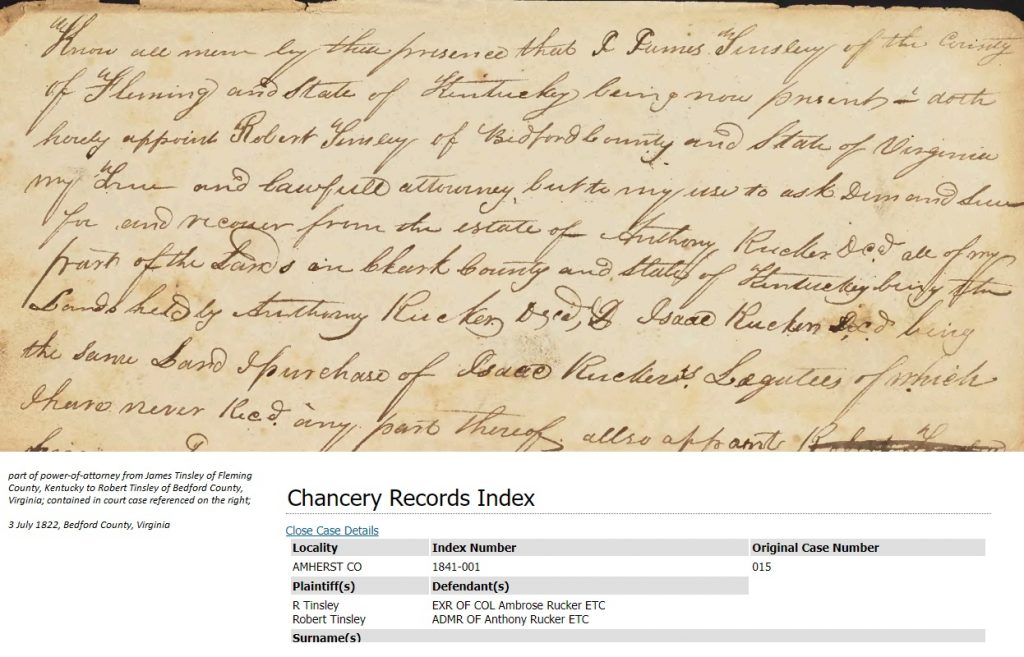 Know all men by thee presence that I James Tinsley of the County
of Fleming and State of Kentucky being now present doth
hereby appoint Robert Tinsley of Bedford County and State of Virginia
my True and lawfull attorney but to my use to ask Demand Sue
for and recover from the estate of Anthony Rucker Decd. all of my
part of the Lands in Clark County and State of Kentucky being the
Lands held by Anthony Rucker Decd, & Isaac Rucker Decd being
the same Land I purchase of Isaac Rucker's Legatees of which
I have never Recd. any part thereof. allso appoint
part of power-of-attorney from James Tinsley of Fleming
County, Kentucky to Robert Tinsley of Bedford County,
Virginia; contained in court case referenced on the right;
3 July 1822, Bedford County, Virginia
Chancery Records Index
Close Case Details
Locality Index Number Original Case Number
AMHERST CO 1841-001 015
Plaintiff(s) Defendant(s)
R Tinsley EXR OF COL Ambrose Rucker ETC
Robert Tinsley ADMR OF Anthony Rucker ETC
Surname(s)